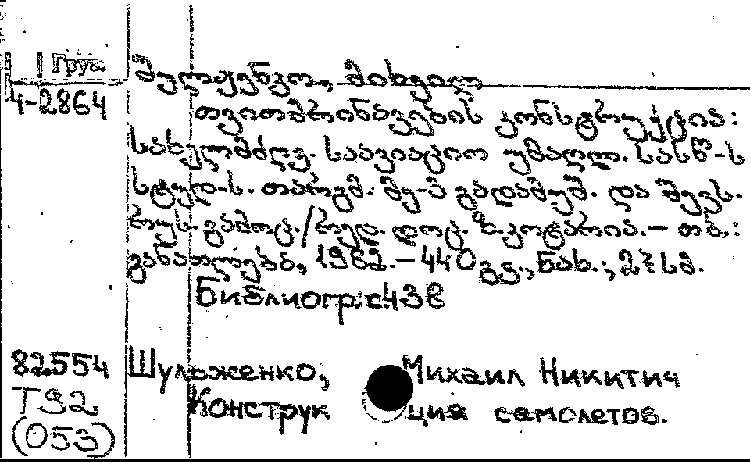 Груз.
4-2864
შულჟენკო, მიხეილ
თვითმფრინავების კონსტრუქცია:
სახელმძღვ. საავიაციო უმაღლ. სასწ-ს
სტუდ-ს. თარგმ. მე-3 გადამუშ. და შევს.
რუს. გამოც./რედ. დოც. კოტარია.– თბ.:
განათლება, 1982.–440 გვ., ნახ.; 27 სმ.
Библиогр: с. 438
82554
Т92
(053)
Шульженко, Михаил Никитич
Конструкция самолетов.